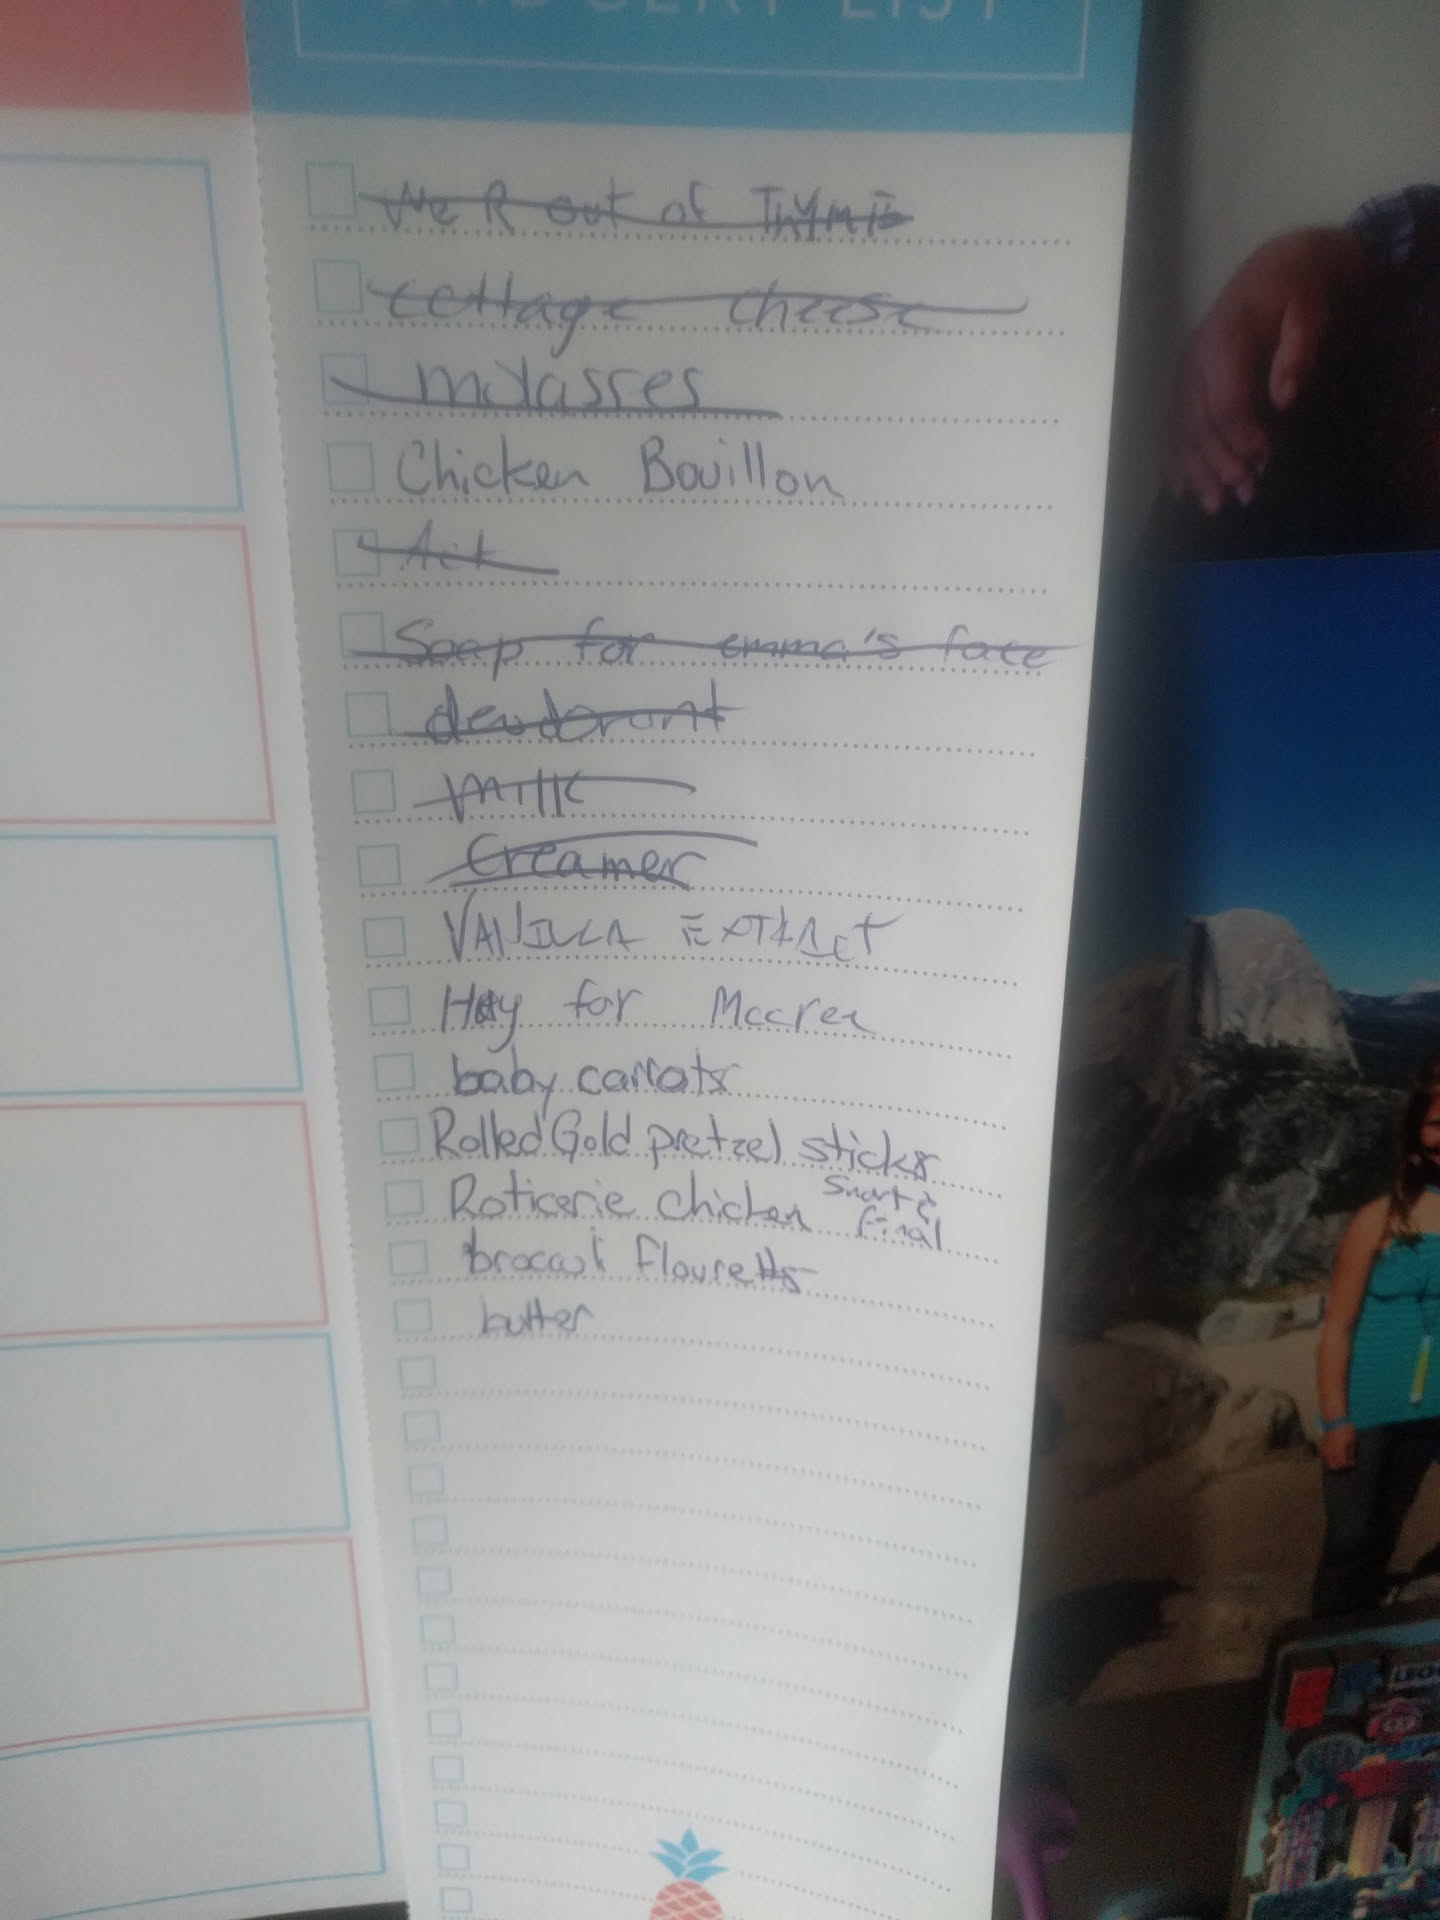 GROCERY LIST
We R out of THYME
cottage cheese
molasses
Chicken Bouillon
Soap for emma's face
deodorant
milk
Creamer
VANILLA EXTRACT
Hay for Mccree
baby carrots
Rolled Gold pretzel sticks
Roticerie chicken Smart & final
broccoli flouretts
butter
LEGO